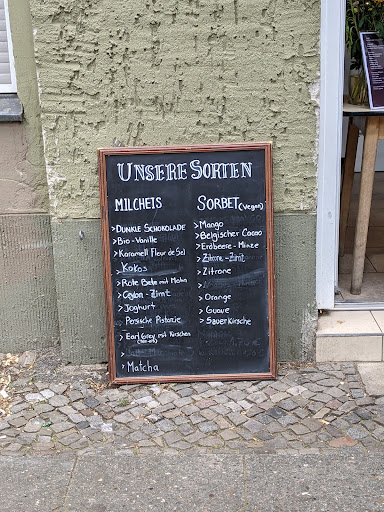 UNSERE SORTEN
MILCHEIS
>DUNKLE SCHOKOLADE
>Bio-Vanille
>Karamell Fleur de Sel
Kokos
>Rote Bete mit Mohn
>Ceylon-Zimt
>Joghurt
Persische Pistazie
>Earl Grey mit Kirschen
>Matcha
SORBET (vegan)
>Mango
>Belgischer Cacao
>Erdbeere-Minze
>Zitrone-Zimt
>Zitrone
>Orange
>Guave
>Sauerkirsche